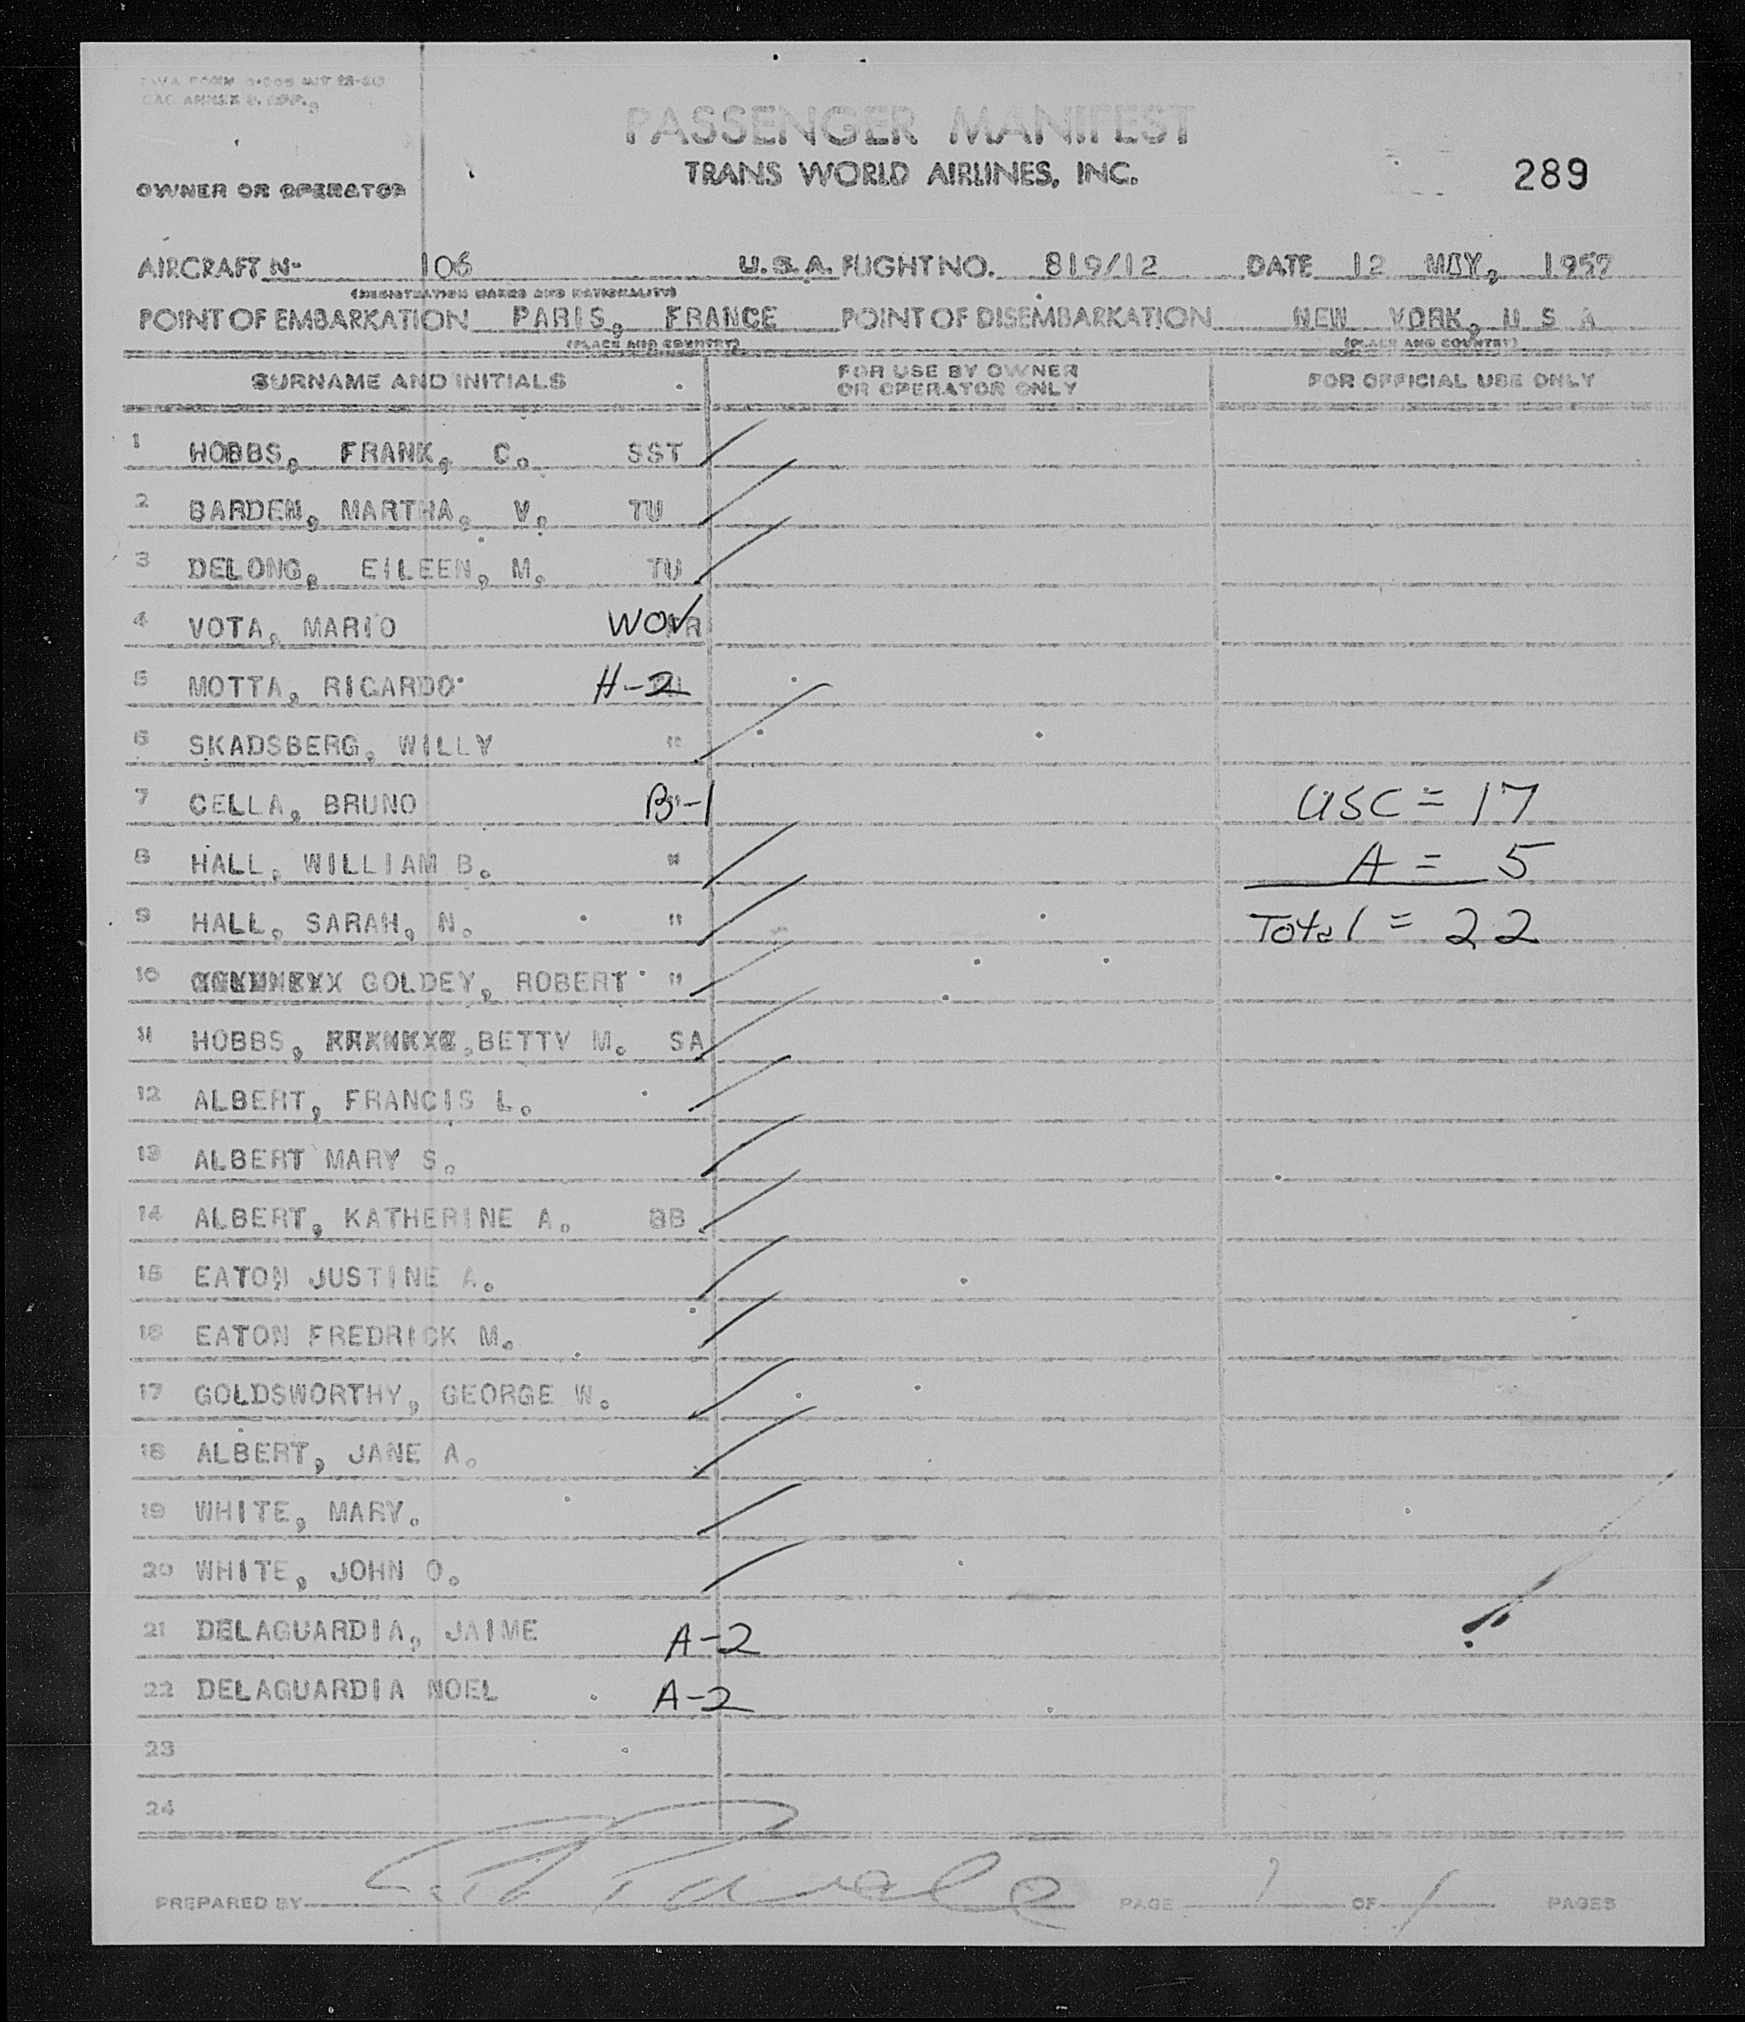 PASSENGER MANIFEST
TRANS WORLD AIRLINES, INC.
289
OWNER OR OPERATOR
AIRCRAFT N- 106 U.S.A. FLIGHT NO. 819/12 DATE 12 MAY, 1957
(REGISTRATION MARKS AND NATIONALITY)
POINT OF EMBARKATION PARIS, FRANCE POINT OF DISEMBARKATION NEW YORK, U S A
(PLACE AND COUNTRY) (PLACE AND COUNTRY)
SURNAME AND INITIALS FOR USE BY OWNER OR OPERATOR ONLY FOR OFFICIAL USE ONLY
1 HOBBS, FRANK, C. SST
2 BARDEN, MARTHA, V, TU
3 DELONG, EILEEN, M, TU
4 VOTA, MARIO WOV
5 MOTTA, RICARDO H-2
6 SKADSBERG, WILLY "
7 CELLA, BRUNO B-1 USC = 17
8 HALL, WILLIAM B. " A = 5
9 HALL, SARAH, N. " Total = 22
10 GOLDEY, ROBERT "
11 HOBBS, BETTY M. SA
12 ALBERT, FRANCIS L.
13 ALBERT MARY S.
14 ALBERT, KATHERINE A. BB
15 EATON JUSTINE A.
16 EATON FREDRICK M.
17 GOLDSWORTHY, GEORGE W.
18 ALBERT, JANE A.
19 WHITE, MARY.
20 WHITE, JOHN O.
21 DELAGUARDIA, JAIME A-2
22 DELAGUARDIA NOEL A-2
23
24
PREPARED BY PAGE 1 OF 1 PAGES